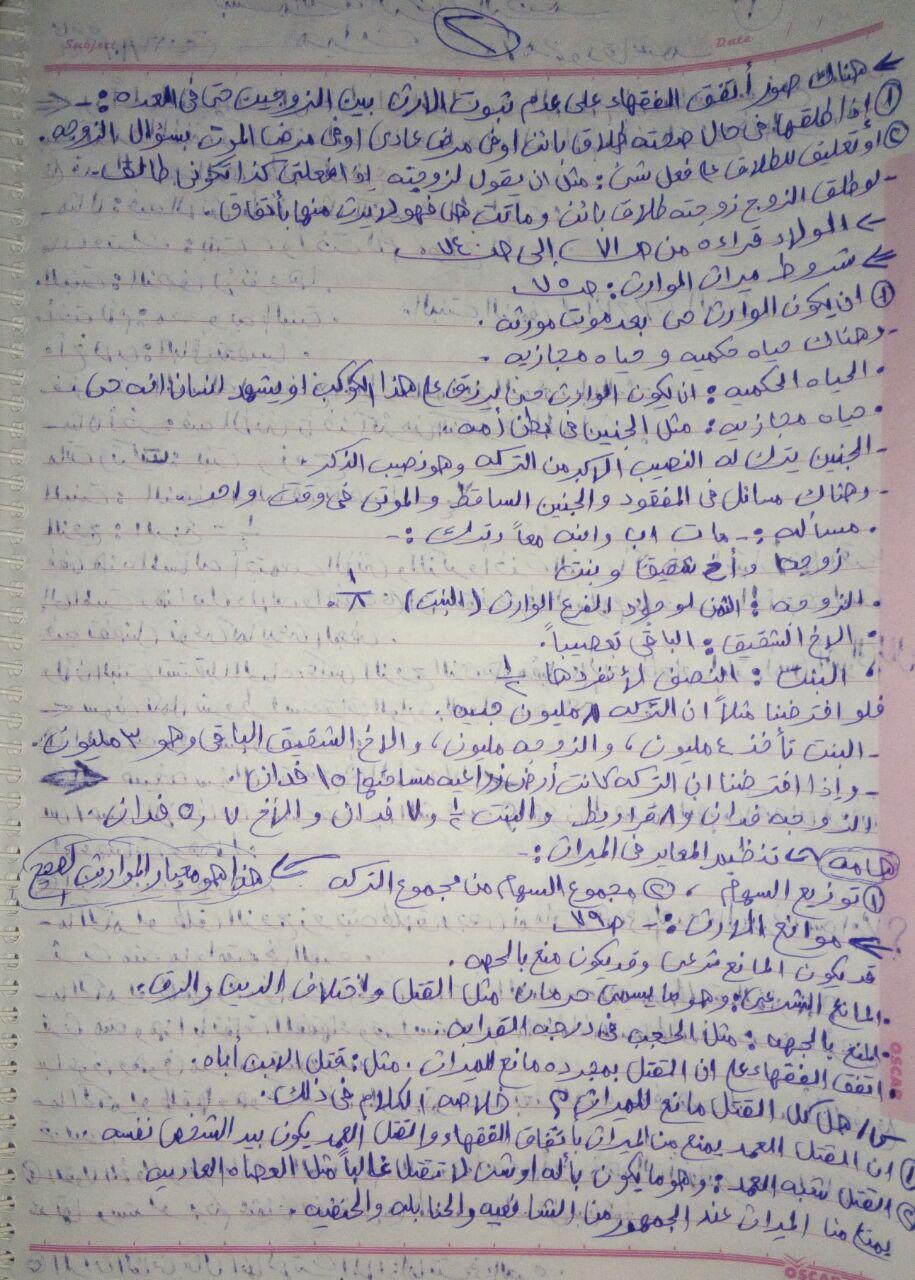 Subject
Date
٢
← هناك صور أتفق الفقهاء على عدم ثبوت الارث بين الزوجين حتى فى العده :-
① إذا طلقها فى حال صحته طلاق بائن او فى مرض عادى او فى مرض الموت بسؤال الزوجه .
② أو تعليق للطلاق ع فعل شئ : مثل ان يقول لزوجيته إذا فعلتى كذا تكونى طالق .
- لو طلق الزوج زوجته طلاق بائن وماتت هى فهو لا يرث منها بأتفاق .
← المولاه قراءه من صـ ٧١ إلى صـ ٧٤
← شروط ميراث الوارث : صـ ٧٥
① ان يكون الوارث حى بعد موت مورثه .
- وهناك حياه حكميه و حياه مجازيه .
• الحياه الحكميه : ان يكون الوارث حى يرزق ع هذا الكوكب او يشهد اثنان انه حى
• حياه مجازيه : مثل الجنين فى بطن أمه
- الجنين يترك له النصيب الاكبر من التركه وهو نصيب الذكر .
- وهناك مسائل فى المفقود والجنين الساقط والموتى فى وقت واحد .
• مسأله :- مات اب وابنه معاً وترك :-
زوجه و أخ شقيق و بنت
• الزوجه : الثمن لوجود الفرع الوارث (البنت) ١/٨ .
• الاخ الشقيق : الباقى تعصيباً .
• البنت : النصف لأنفردها ١/٢
فلو افترضنا مثلاً ان التركه ٨ مليون جنيه .
- البنت تأخذ ٤ مليون ، والزوجه مليون ، والاخ الشقيق الباقى وهو ٣ مليون .
- وإذا افترضنا ان التركه كانت أرض زراعيه مساحتها ١٥ فدان .
الزوجه فدان و قراريط والبنت ١/٢ و ٧ فدان و الأخ ٥ فدان
هامه ← تنظيم المعاير فى الميراث :-
① توزيع السهام ، ② مجموع السهام من مجموع التركه ← هذا هو معيار المواريث الصحيح
← موانع الارث :- صـ ٧٩
قد يكون المانع شرعى وقد يكون منع بالحجب .
• المانع الشرعى : وهو ما يسمى حرمان مثل القتل و اختلاف الدين والرق .
• المنع بالحجب : مثل الحجب فى درجه القرابه .
• اتفق الفقهاء ع ان القتل بمجرده مانع للميراث . مثل : قتل الابن أباه .
س/ هل كل القتل مانع للميراث ؟ خلاصه الكلام فى ذلك .
① ان القتل العمد يمنع من الميراث باتفاق الفقهاء والقتل العمد يكون بيد الشخص نفسه
② القتل شبه العمد : وهو ما يكون بأله او شئ لا تقتل غالباً مثل العصاه العاديه
يمنع منا الميراث عند الجمهور من الشافعيه والحنابله والحنفيه .
OSCAR